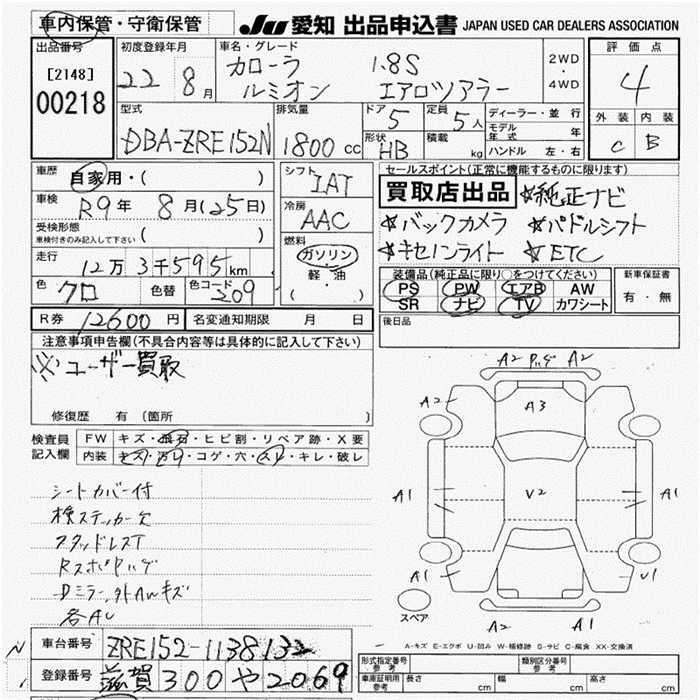 車内保管・守衛保管
JU 愛知 出品申込書 JAPAN USED CAR DEALERS ASSOCIATION
出品番号 初度登録年月 車名・グレード 評価点
[2148]
00218
22 8月
カローラ 1.8S
ルミオン エアロツアラー
2WD
・
4WD
4
外装 内装
C B
型式 排気量 ドア 定員 ディーラー・並行
DBA-ZRE152N 1800cc 5 5人
モデル年式 年
形状 HB 積載 kg ハンドル 左・右
車歴 自家用・( )
車検 R9年 8月(25日)
受検形態
車検付きのみ記入して下さい ( )
走行 12万3千595km
色 クロ 色替 色コード 209
シフト IAT
冷房 AAC
燃料
ガソリン
・
軽・油
( )
セールスポイント(正常に機能するものに限ります)
買取店出品 ☆純正ナビ
☆バックカメラ ☆パドルシフト
☆キセノンライト ☆ETC
装備品(純正品に限り○をつけてください) 新車保証書
PS PW エアB AW 有・無
SR ナビ TV カワシート
R券 12600円 名変通知期限 月 日
後日品
注意事項申告欄(不具合内容等は具体的に記入して下さい)
※ユーザー買取
修復歴 有(箇所 )
検査員記入欄
FW キズ・飛石・ヒビ割・リペア跡・X要
内装 キズ・汚レ・コゲ・穴・スレ・キレ・破レ
シートカバー付
検ステッカー欠
スタッドレスT
RスポPハゲ
Dミラー、外AWキズ
各AU
A2 Pハゲ A2
A2 A3
A1 V2 A1
A1 U1
A2 A1
スペア
A-キズ E-エクボ U-凹み W-補修跡 S-サビ C-腐食 XX-交換済
車台番号 ZRE152-1138132
登録番号 滋賀 300 や 2069
形式指定番号 参考 類別区分番号 参考
車庫証明用 参考 長さ cm 幅 cm 高さ cm